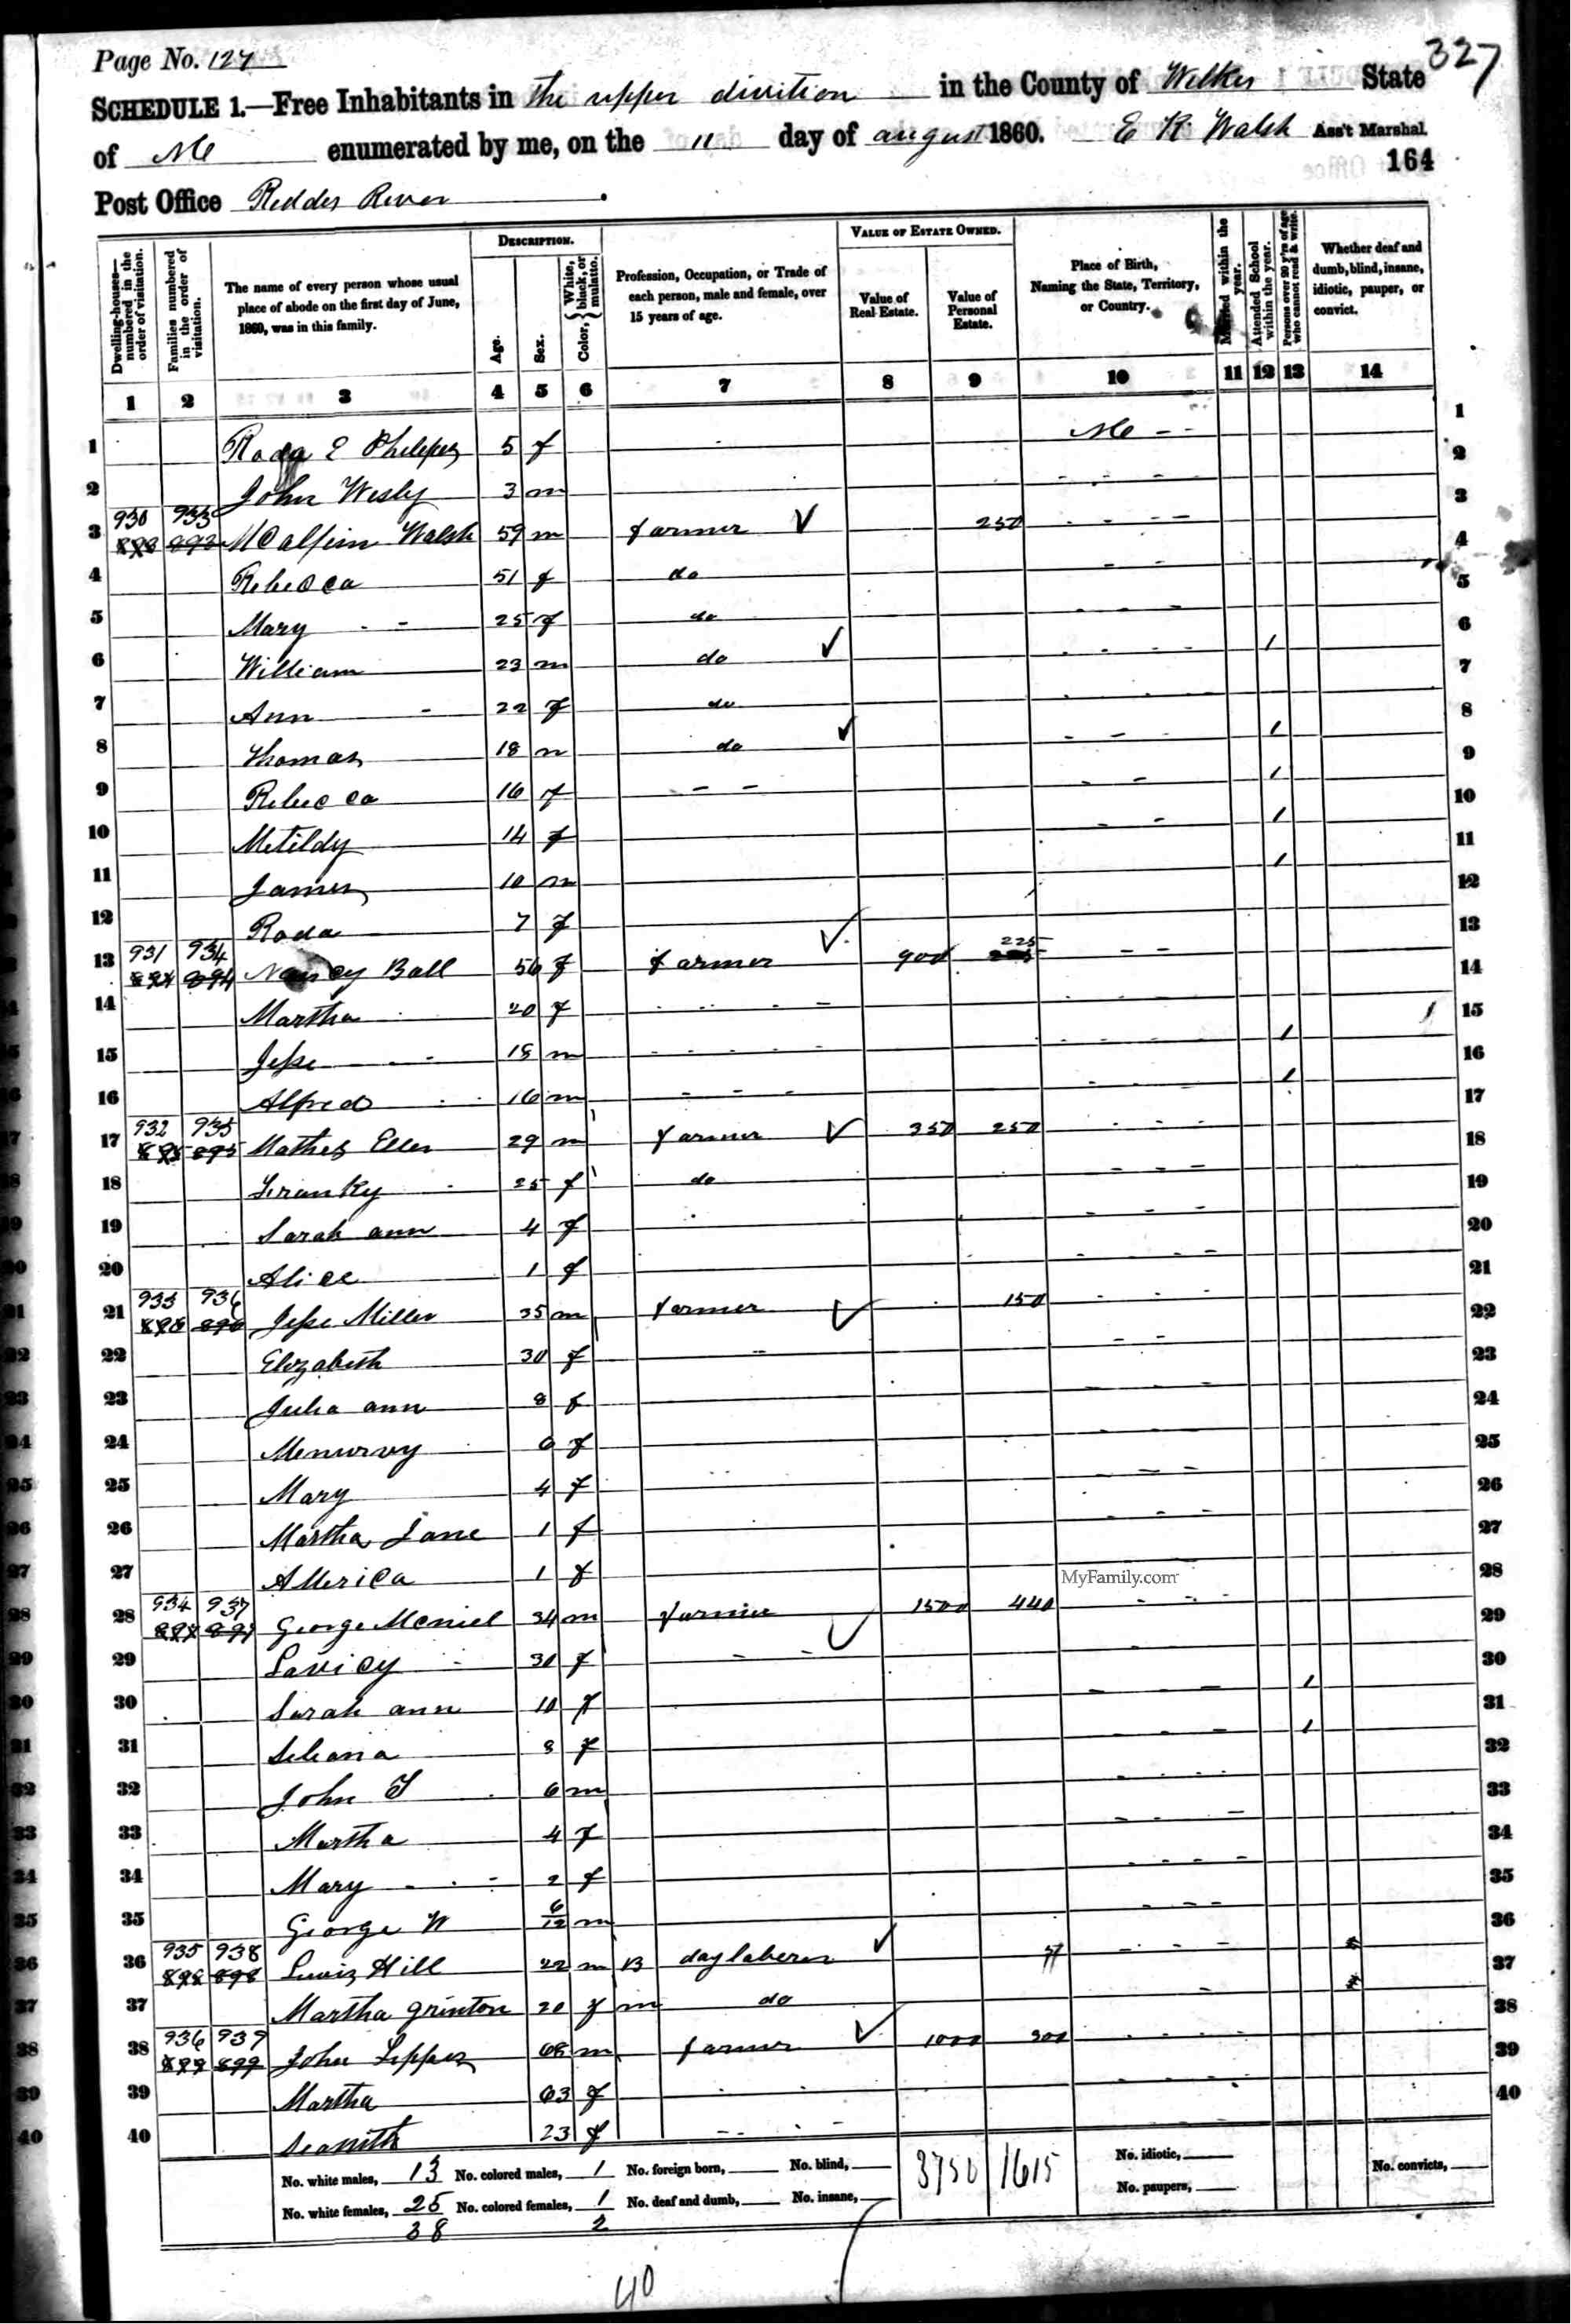 Page No. 127
327
SCHEDULE 1.—Free Inhabitants in the upper divition in the County of Wilkes State
of NC enumerated by me, on the 11 day of august 1860. E R Walsh Ass't Marshal.
164
Post Office Reddes River
Dwelling-houses—numbered in the order of visitation.
Families numbered in the order of visitation.
The name of every person whose usual place of abode on the first day of June, 1860, was in this family.
DESCRIPTION.
Age.
Sex.
Color, { White, black, or mulatto.
Profession, Occupation, or Trade of each person, male and female, over 15 years of age.
VALUE OF ESTATE OWNED.
Value of Real Estate.
Value of Personal Estate.
Place of Birth, Naming the State, Territory, or Country.
Married within the year.
Attended School within the year.
Persons over 20 y'rs of age who cannot read & write.
Whether deaf and dumb, blind, insane, idiotic, pauper, or convict.
1 2 3 4 5 6 7 8 9 10 11 12 13 14
1 Roda E Philips 5 f NC - - 1
2 John Wesly 3 m 2
3 930 933 893 McAlpin Walsh 59 m farmer 250 3
4 Rebecca 51 f do 4
5 Mary 25 f do 5
6 William 23 m do 1 6
7 Ann 22 f do 7
8 Thomas 18 m do 1 8
9 Rebecca 16 f 1 9
10 Metildy 14 f 1 10
11 James 10 m 1 11
12 Roda 7 f 12
13 931 934 894 894 Nancy Ball 56 f farmer 900 225 13
14 Martha 20 f 14
15 Jesse 18 m 1 15
16 Alfred 16 m 1 16
17 932 935 895 895 Mathes Eller 29 m farmer 350 250 17
18 Franky 25 f do 18
19 Sarah ann 4 f 19
20 Alice 1 f 20
21 933 936 896 896 Jesse Miller 35 m farmer 150 21
22 Elizabeth 30 f 22
23 Julia ann 8 f 23
24 Menurvy 6 f 24
25 Mary 4 f 25
26 Martha Jane 1 f 26
27 America 1 f 27
MyFamily.com
28 934 937 897 897 George McNiel 34 m farmer 1500 440 28
29 Lavicy 30 f 29
30 Sarah ann 10 f 1 30
31 8 f 1 31
32 John T 6 m 32
33 Martha 4 f 33
34 Mary 2 f 34
35 George W 6/12 m 35
36 935 938 898 898 Lewis Hill 22 m B day laberer 36
37 Martha Grinton 20 f m do 37
38 936 939 899 899 John 68 m farmer 1000 300 38
39 Martha 63 f 39
40 23 f 40
No. white males, 13 No. colored males, 1 No. foreign born, No. blind, 3750 1615 No. idiotic, No. convicts,
No. white females, 25 No. colored females, 1 No. deaf and dumb, No. insane, No. paupers,
38 2
40